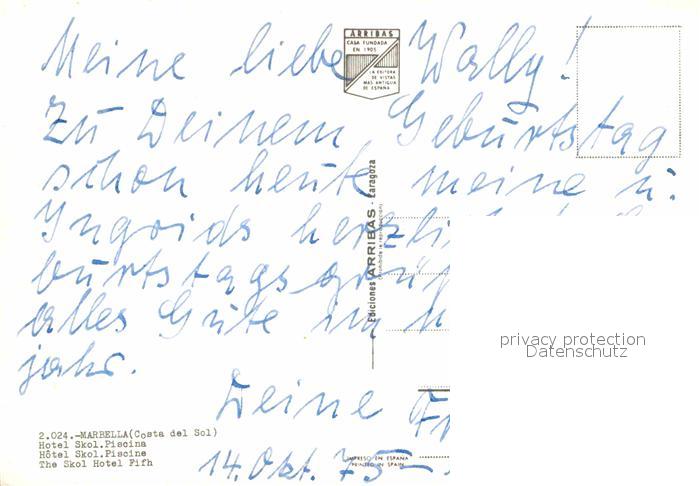 ARRIBAS
CASA FUNDADA
EN 1905
LA EDITORA
DE VISTAS
MAS ANTIGUA
DE ESPAÑA
Meine liebe Wally!
Zu Deinem Geburtstag
schon heute meine u.
Ingrids herzli
burtstagsgrüß
alles Gute im N
jahr.
Deine Fr
14. Okt. 75
Ediciones ARRIBAS - Zaragoza
(Prohibida la reproducción)
privacy protection
Datenschutz
2.024.-MARBELLA(Costa del Sol)
Hotel Skol.Piscina
Hôtel Skol.Piscine
The Skol Hotel Fifh
IMPRESO EN ESPAÑA
PRINTED IN SPAIN